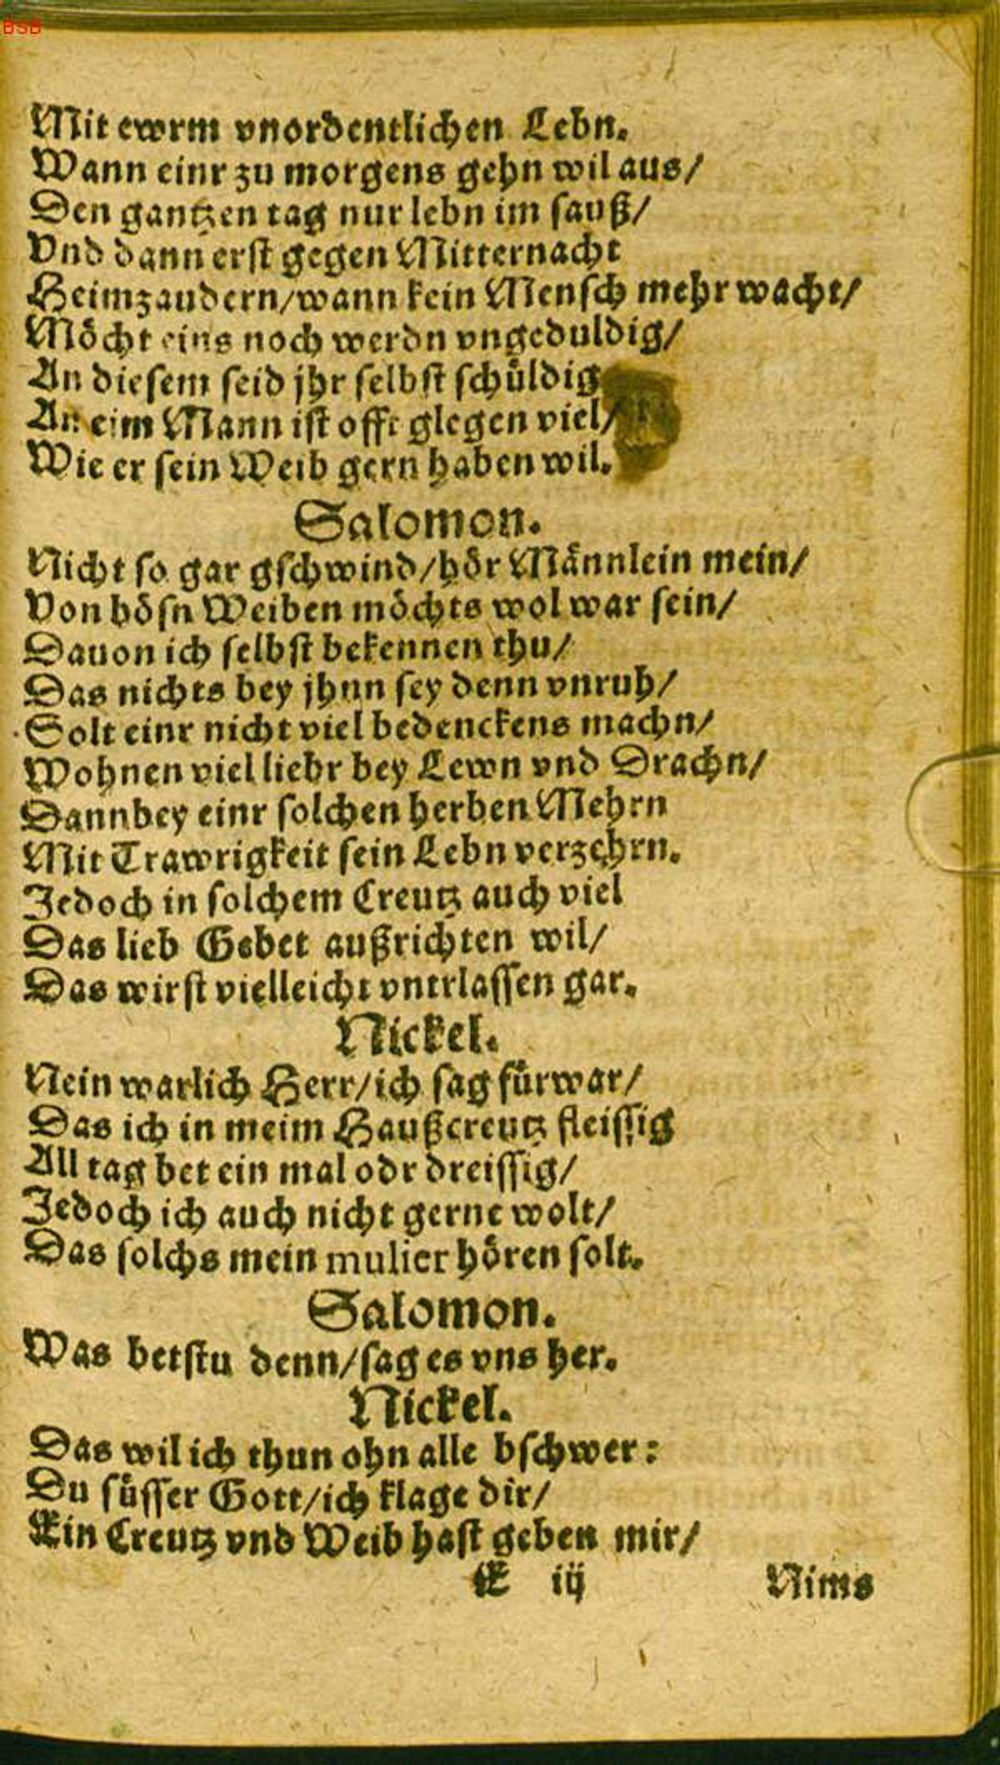 BSB
Mit ewrm vnordentlichen Lebn.
Wann einr zu morgens gehn wil aus/
Den gantzen tag nur lebn im sauß/
Vnd dann erst gegen Mitternacht
Heimzaudern/wann kein Mensch mehr wacht/
Möcht eins noch werdn vngeduldig/
An diesem seid jhr selbst schüldig
An eim Mann ist offt glegen viel/
Wie er sein Weib gern haben wil.
Salomon.
Nicht so gar gschwind/hör Männlein mein/
Von bösn Weiben möchts wol war sein/
Dauon ich selbst bekennen thu/
Das nichts bey jhnn sey denn vnruh/
Solt einr nicht viel bedenckens machn/
Wohnen viel liebr bey Lewn vnd Drachn/
Dann bey einr solchen herben Mehrn
Mit Trawrigkeit sein Lebn verzehrn.
Jedoch in solchem Creutz auch viel
Das lieb Gebet außrichten wil/
Das wirst vielleicht vntrlassen gar.
Nickel.
Nein warlich Herr/ich sag fürwar/
Das ich in meim Haußcreutz fleissig
All tag bet ein mal odr dreissig/
Jedoch ich auch nicht gerne wolt/
Das solchs mein mulier hören solt.
Salomon.
Was betstu denn/sag es vns her.
Nickel.
Das wil ich thun ohn alle bschwer:
Du süsser Gott/ich klage dir/
Ein Creutz vnd Weib hast geben mir/
E iij Nims